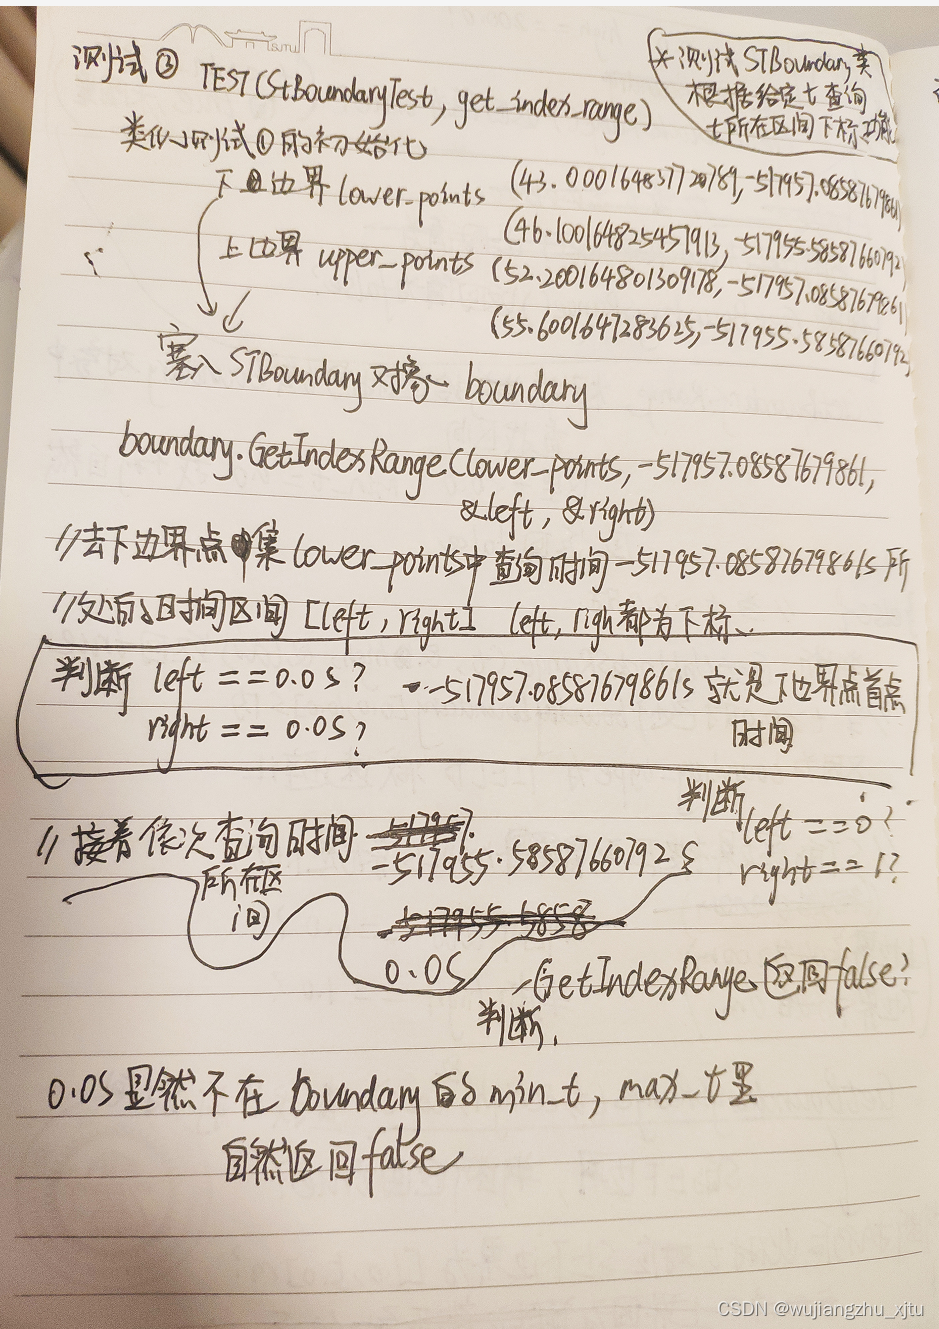 测试③ TEST(StBoundaryTest, get_index_range)
*测试STBoundary类
根据给定t查询
t所在区间下标功能
类似测试①的初始化
下边界 lower_points (43.000164837720789, -517957.08587679861)
(46.100164825451913, -517955.58587660792)
上边界 upper_points (52.200164801309178, -517957.08587679861)
(55.6001647283625, -517955.58587660792)
塞入 STBoundary 对象 boundary
boundary.GetIndexRange(lower_points, -517957.08587679861,
&left, &right)
//去下边界点集lower_points中查询时间-517957.08587679861s所
//处的时间区间[left, right] left, righ都为下标、
判断 left == 0.0s? -517957.08587679861s就是下边界点首点
right == 0.0s? 时间
//接着依次查询时间 -517955.58587660792s
所在区
间
判断
left == 0?
right == 1?
0.0s
判断 GetIndexRange返回false?
0.0s显然不在boundary的min_t, max_t里
自然返回false
CSDN @wujiangzhu_xjtu